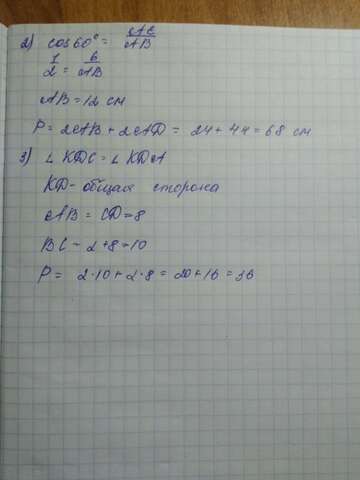 2) cos60° = AE/AB
1/2 = 6/AB
AB = 12 см
P = 2AB + 2AD = 24 + 44 = 68 см
3) ∠KDC = ∠KDA
KD - общая сторона
AB = CD = 8
BC = 2 + 8 = 10
P = 2·10 + 2·8 = 20 + 16 = 36